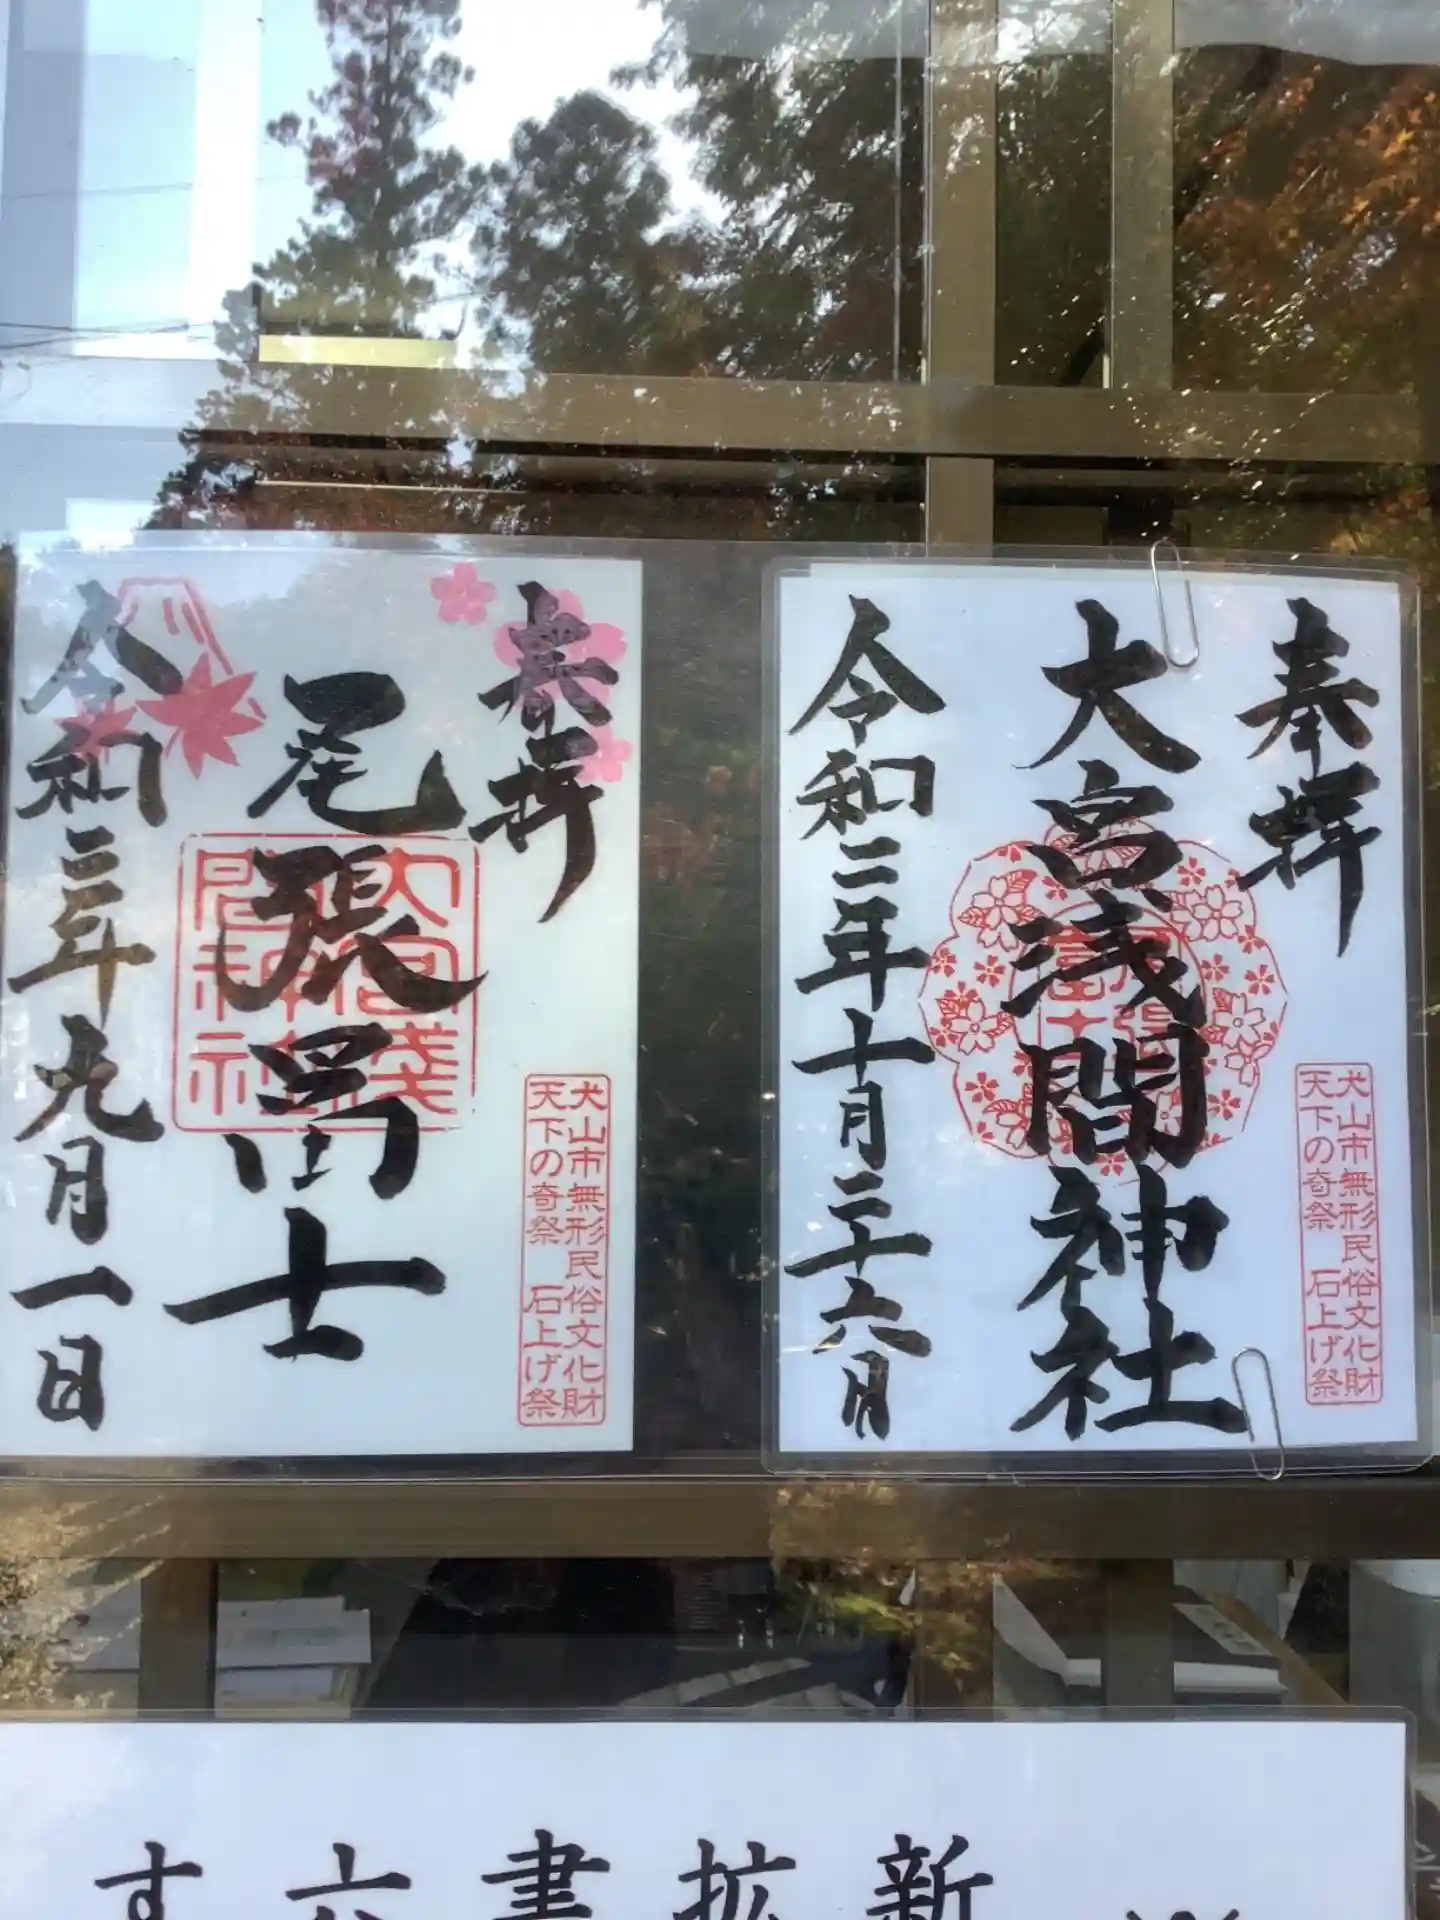 奉拝
大宮浅間神社
令和二年十月二十六日
犬山市無形民俗文化財
天下の奇祭 石上げ祭
奉拝
尾張冨士
大宮浅
間神社
令和二年九月一日
犬山市無形民俗文化財
天下の奇祭 石上げ祭
新
拡
書
す